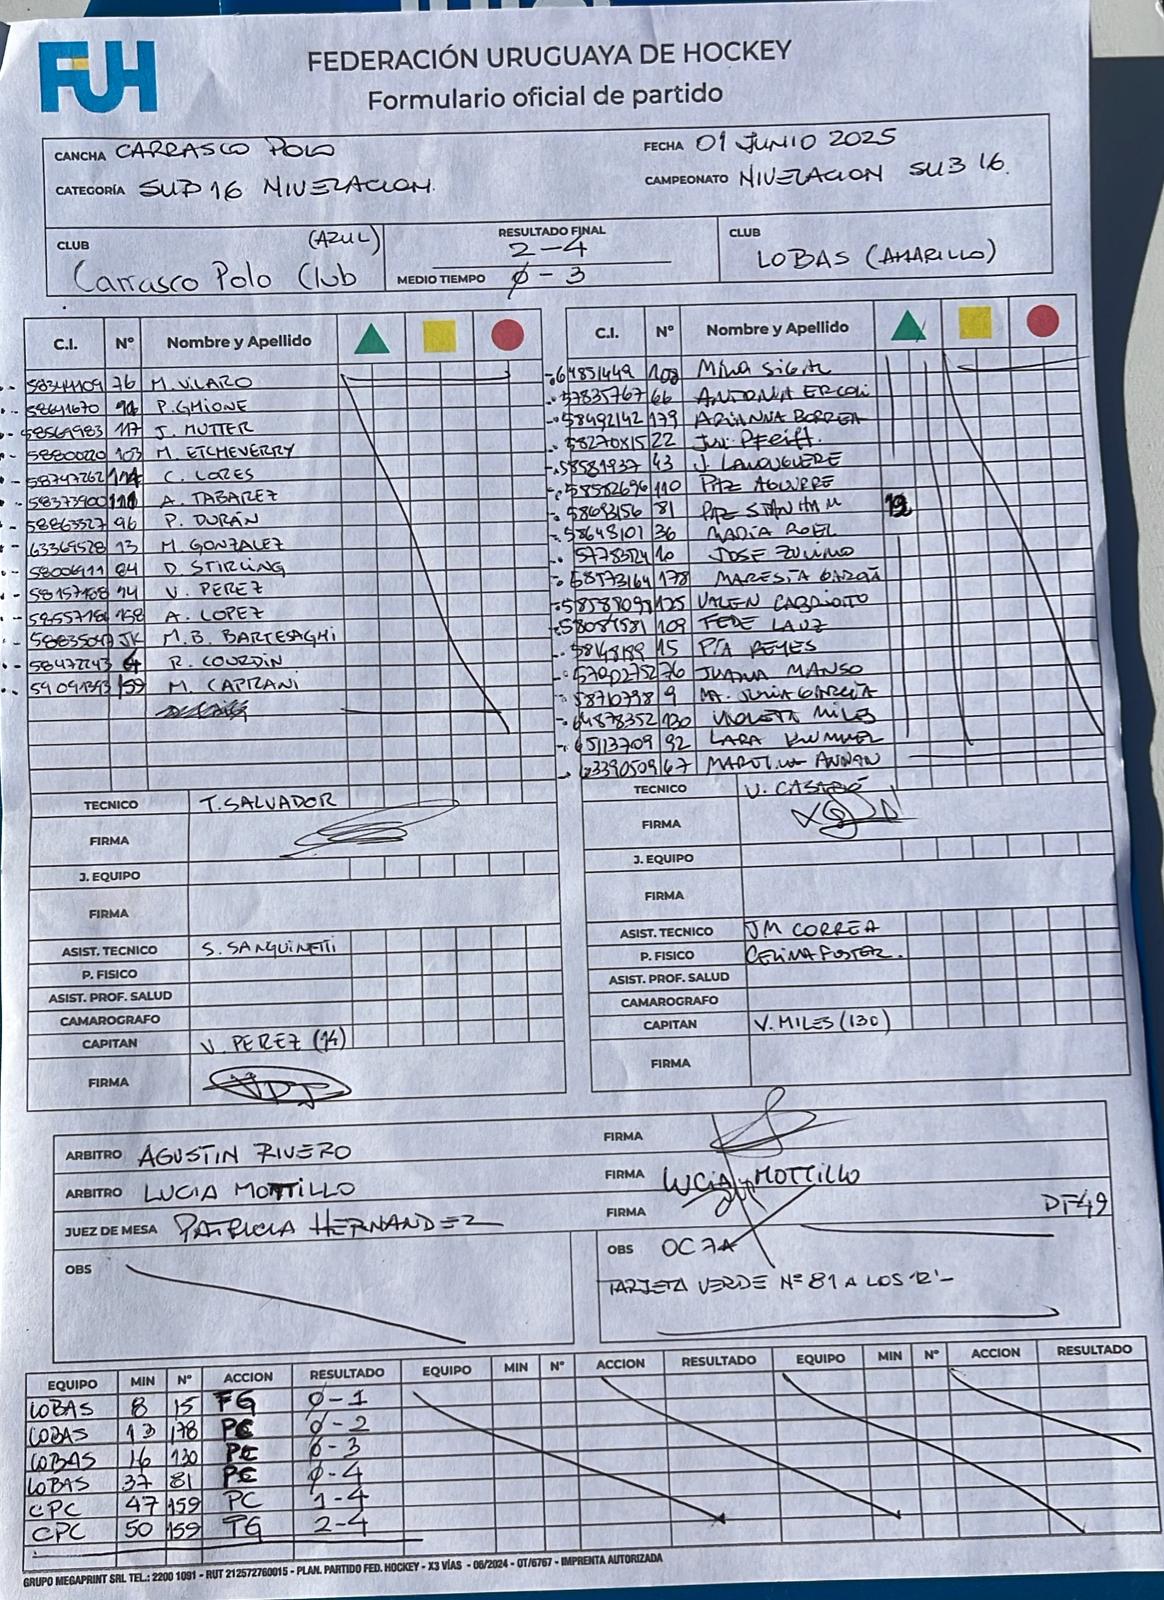 FUH
FEDERACIÓN URUGUAYA DE HOCKEY
Formulario oficial de partido
CANCHA CARRASCO POLO
FECHA 01 JUNIO 2025
CATEGORÍA SUB 16 NIVELACION.
CAMPEONATO NIVELACION SUB 16.
CLUB (AZUL)
Carrasco Polo Club
RESULTADO FINAL
2-4
MEDIO TIEMPO 0-3
CLUB
LOBAS (AMARILLO)
C.I. Nº Nombre y Apellido
76 M. VILARO
P. GHIONE
58569983 117 J. MUTTER
58800220 103 M. ETCHEVERRY
58747262 C. LORES
58373900 A. TABAREZ
58863527 96 P. DURÁN
63369528 13 M. GONZALEZ
84 D. STIRLING
V. PEREZ
A. LOPEZ
M.B. BARTESAGHI
58472243 R. COURDIN
159 M. CAPRANI
TECNICO T. SALVADOR
FIRMA
J. EQUIPO
FIRMA
ASIST. TECNICO S. SANGUINETTI
P. FISICO
ASIST. PROF. SALUD
CAMAROGRAFO
CAPITAN V. PEREZ (14)
FIRMA
C.I. Nº Nombre y Apellido
64851449
57835767 66 ANTONIA
58492142 179 ARIANNA BORREA
58270815 22 Juli Pfeiff.
58581937 43 J.
58582696 110 PAZ AGUIRRE
58683156 81 PAZ 12
58648101 36 MARIA ROEL
10 JOSE
58573164 178
125 VALEN
109 FEDE
15 PIA REYES
76 JUANA MANSO
58710798 9 MA. JULIA GARCIA
64878352 130 VIOLETA MILES
65113709 92 LARA KUMMEL
63390509 67
TECNICO V.
FIRMA
J. EQUIPO
FIRMA
ASIST. TECNICO JM CORREA
P. FISICO CELINA FOSTER.
ASIST. PROF. SALUD
CAMAROGRAFO
CAPITAN V. MILES (130)
FIRMA
ARBITRO AGUSTIN RIVERO
FIRMA
ARBITRO LUCIA MOTTILLO
FIRMA LUCIA MOTTILLO
JUEZ DE MESA PATRICIA HERNANDEZ
FIRMA
OBS
OBS
TARJETA VERDE Nº 81 A LOS 12'-
EQUIPO MIN Nº ACCION RESULTADO EQUIPO MIN Nº ACCION RESULTADO EQUIPO MIN Nº ACCION RESULTADO
LOBAS 8 15 FG 0-1
LOBAS 13 178 PC 0-2
LOBAS 16 130 PC 0-3
LOBAS 37 81 PC 0-4
CPC 47 159 PC 1-4
CPC 50 159 FG 2-4
GRUPO MEGAPRINT SRL TEL.: 2200 1091 - RUT 212572760015 - PLAN. PARTIDO FED. HOCKEY - X3 VÍAS - 06/2024 - OT/6767 - IMPRENTA AUTORIZADA